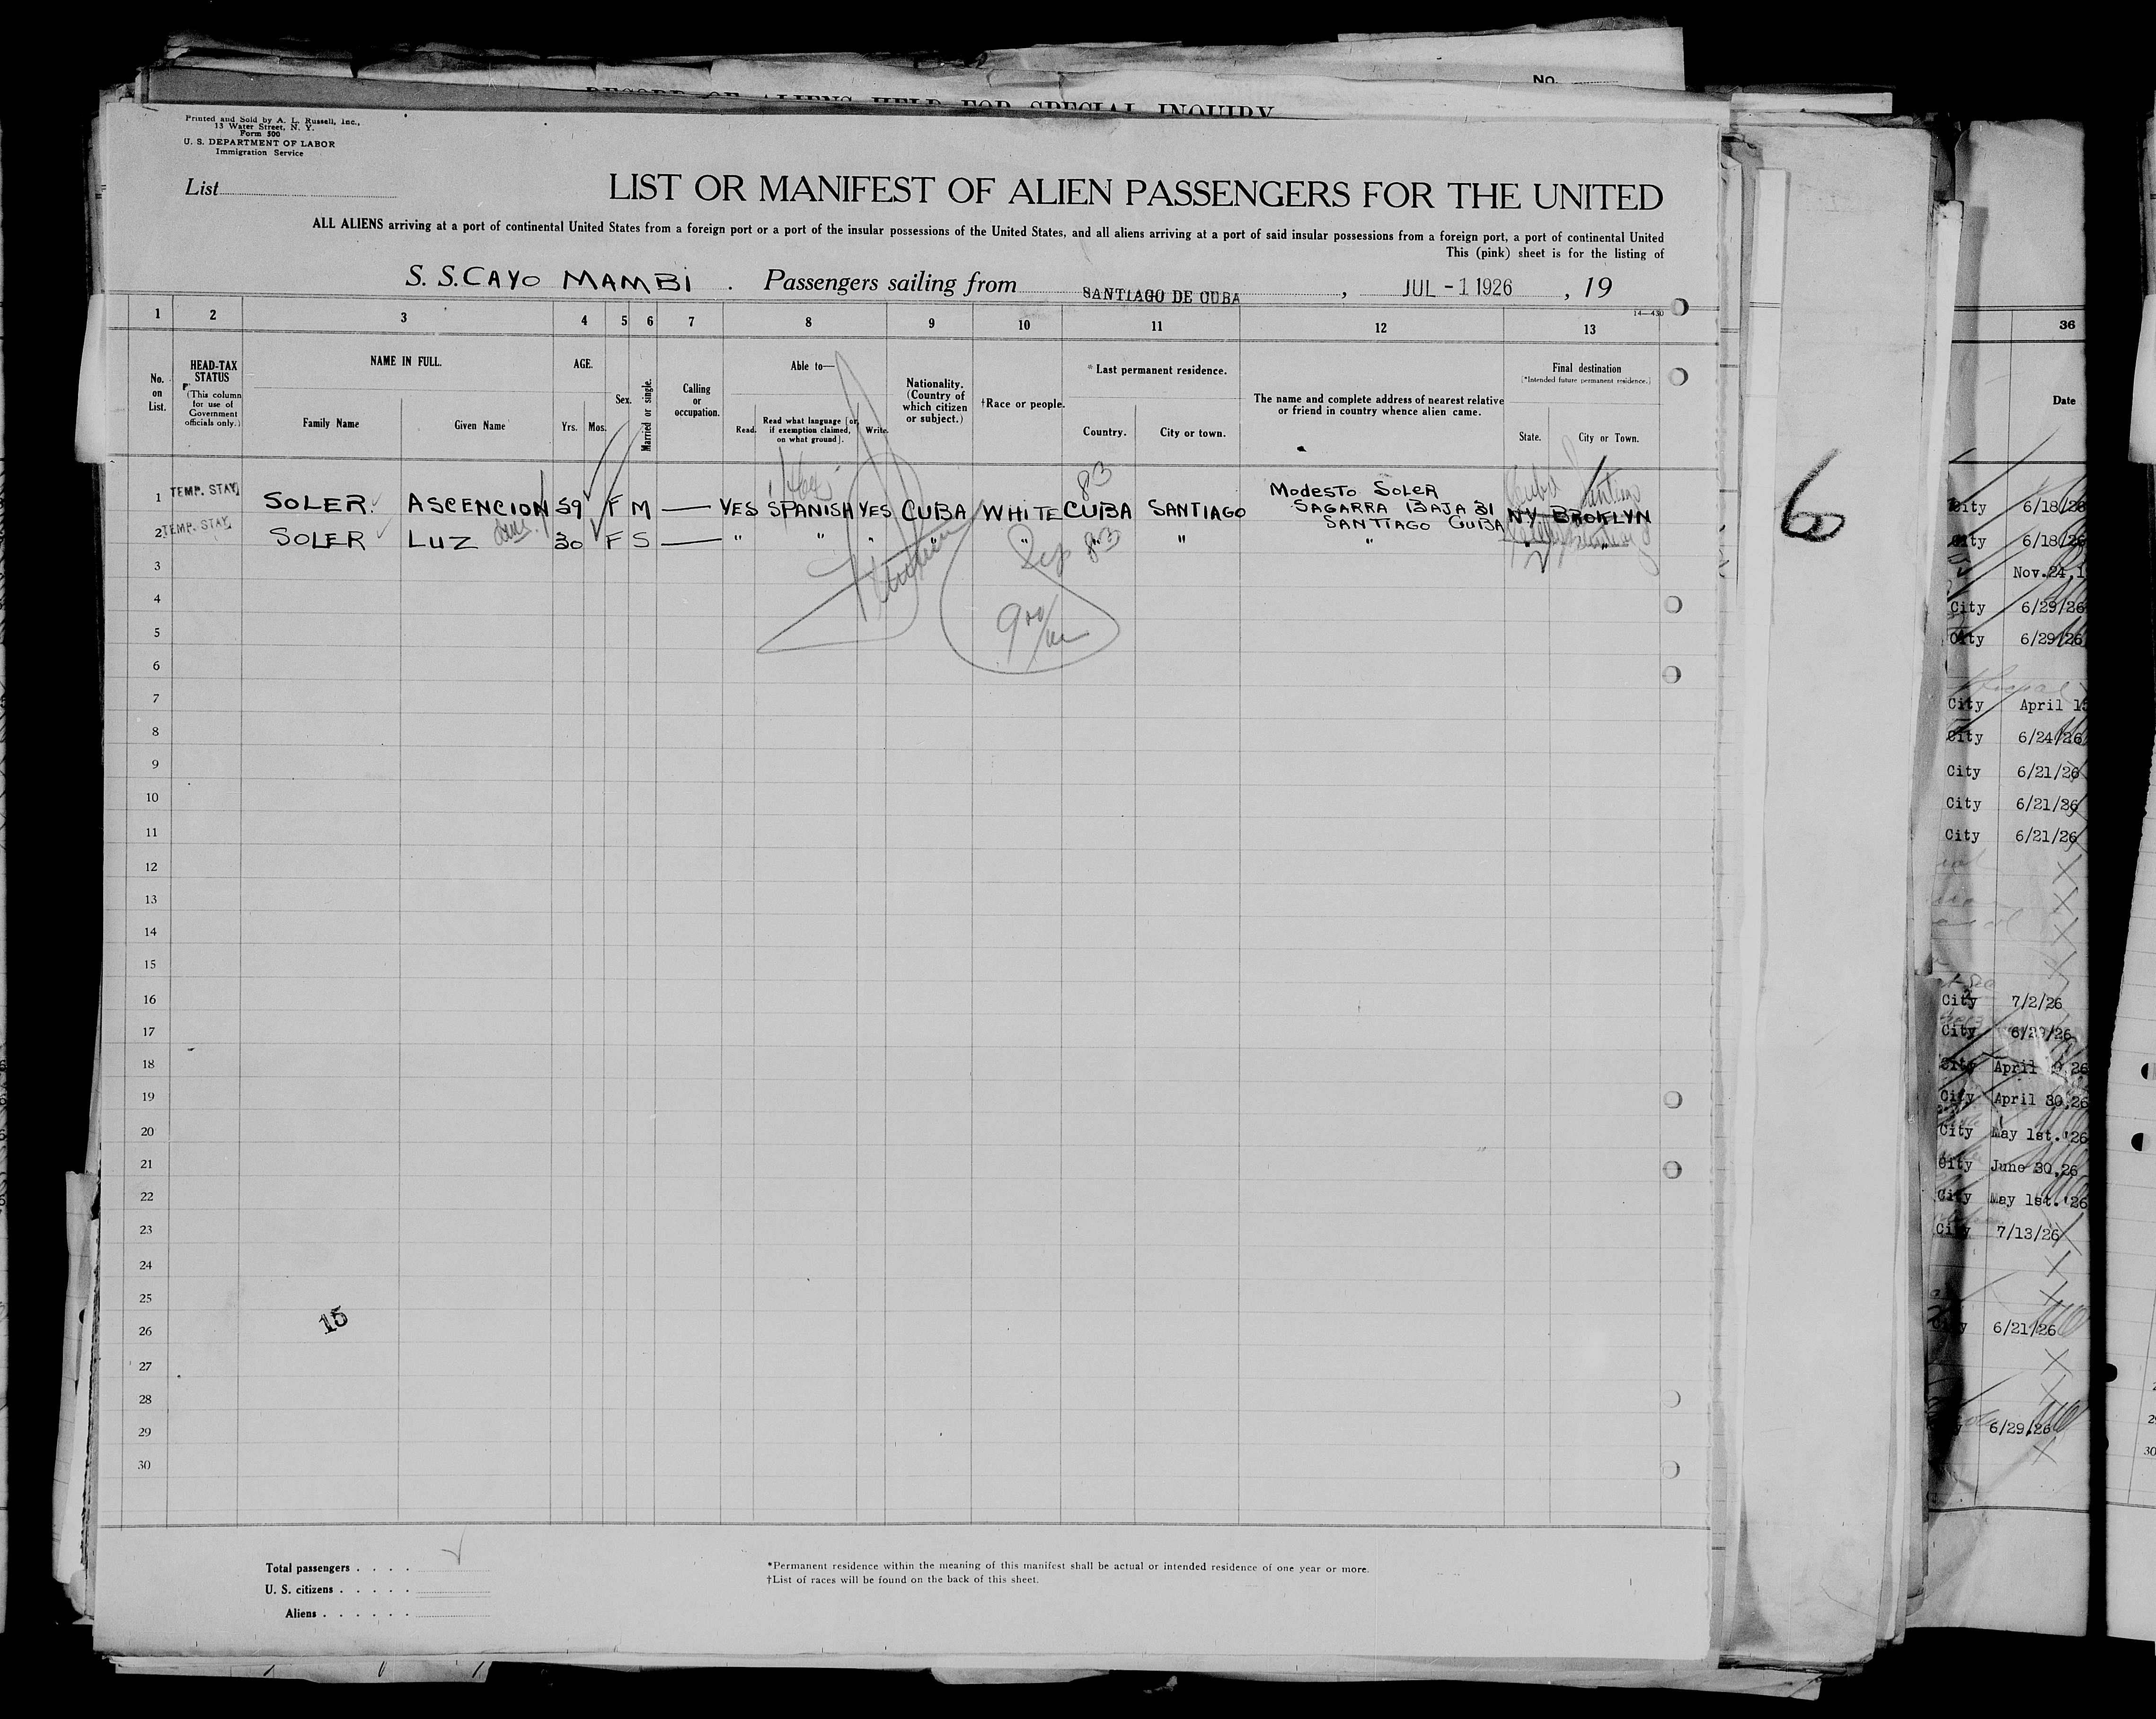 No.
RECORD OF ALIENS HELD FOR SPECIAL INQUIRY
Printed and Sold by A. L. Russell, Inc.,
13 Water Street, N. Y.
Form 500
U. S. DEPARTMENT OF LABOR
Immigration Service
List
LIST OR MANIFEST OF ALIEN PASSENGERS FOR THE UNITED
ALL ALIENS arriving at a port of continental United States from a foreign port or a port of the insular possessions of the United States, and all aliens arriving at a port of said insular possessions from a foreign port, a port of continental United
This (pink) sheet is for the listing of
S. S. CAYO MAMBI . Passengers sailing from SANTIAGO DE CUBA , JUL - 1 1926 , 19
14—430
1 2 3 4 5 6 7 8 9 10 11 12 13
No. on List.
HEAD-TAX STATUS
(This column for use of Government officials only.)
NAME IN FULL.
Family Name
Given Name
AGE.
Yrs. Mos.
Sex.
Married or single.
Calling or occupation.
Able to—
Read.
Read what language [or, if exemption claimed, on what ground].
Write.
Nationality. (Country of which citizen or subject.)
†Race or people.
*Last permanent residence.
Country.
City or town.
The name and complete address of nearest relative or friend in country whence alien came.
Final destination
[*Intended future permanent residence.]
State.
City or Town.
83
1 TEMP. STAY SOLER ASCENCION 59 F M — YES SPANISH YES CUBA WHITE CUBA SANTIAGO Modesto Soler SAGARRA BAJA 31 SANTIAGO CUBA NY BROKLYN
2 TEMP. STAY SOLER LUZ 30 F S — " " " " " " " "
83
3
4
5
6
7
8
9
10
11
12
13
14
15
16
17
18
19
20
21
22
23
24
25
26
27
28
29
30
15
Total passengers . . . .
U. S. citizens . . . . .
Aliens . . . . . .
*Permanent residence within the meaning of this manifest shall be actual or intended residence of one year or more.
†List of races will be found on the back of this sheet.
6
36
Date
City 6/18/26
City 6/18/26
Nov.24,1
City 6/29/26
City 6/29/26
City April 15
City 6/24/26
City 6/21/26
City 6/21/26
City 6/21/26
City 7/2/26
City 6/29/26
City April
City April 30,26
City May 1st.'26
City June 30,26
City May 1st.'26
City 7/13/26
6/21/26
6/29/26
30